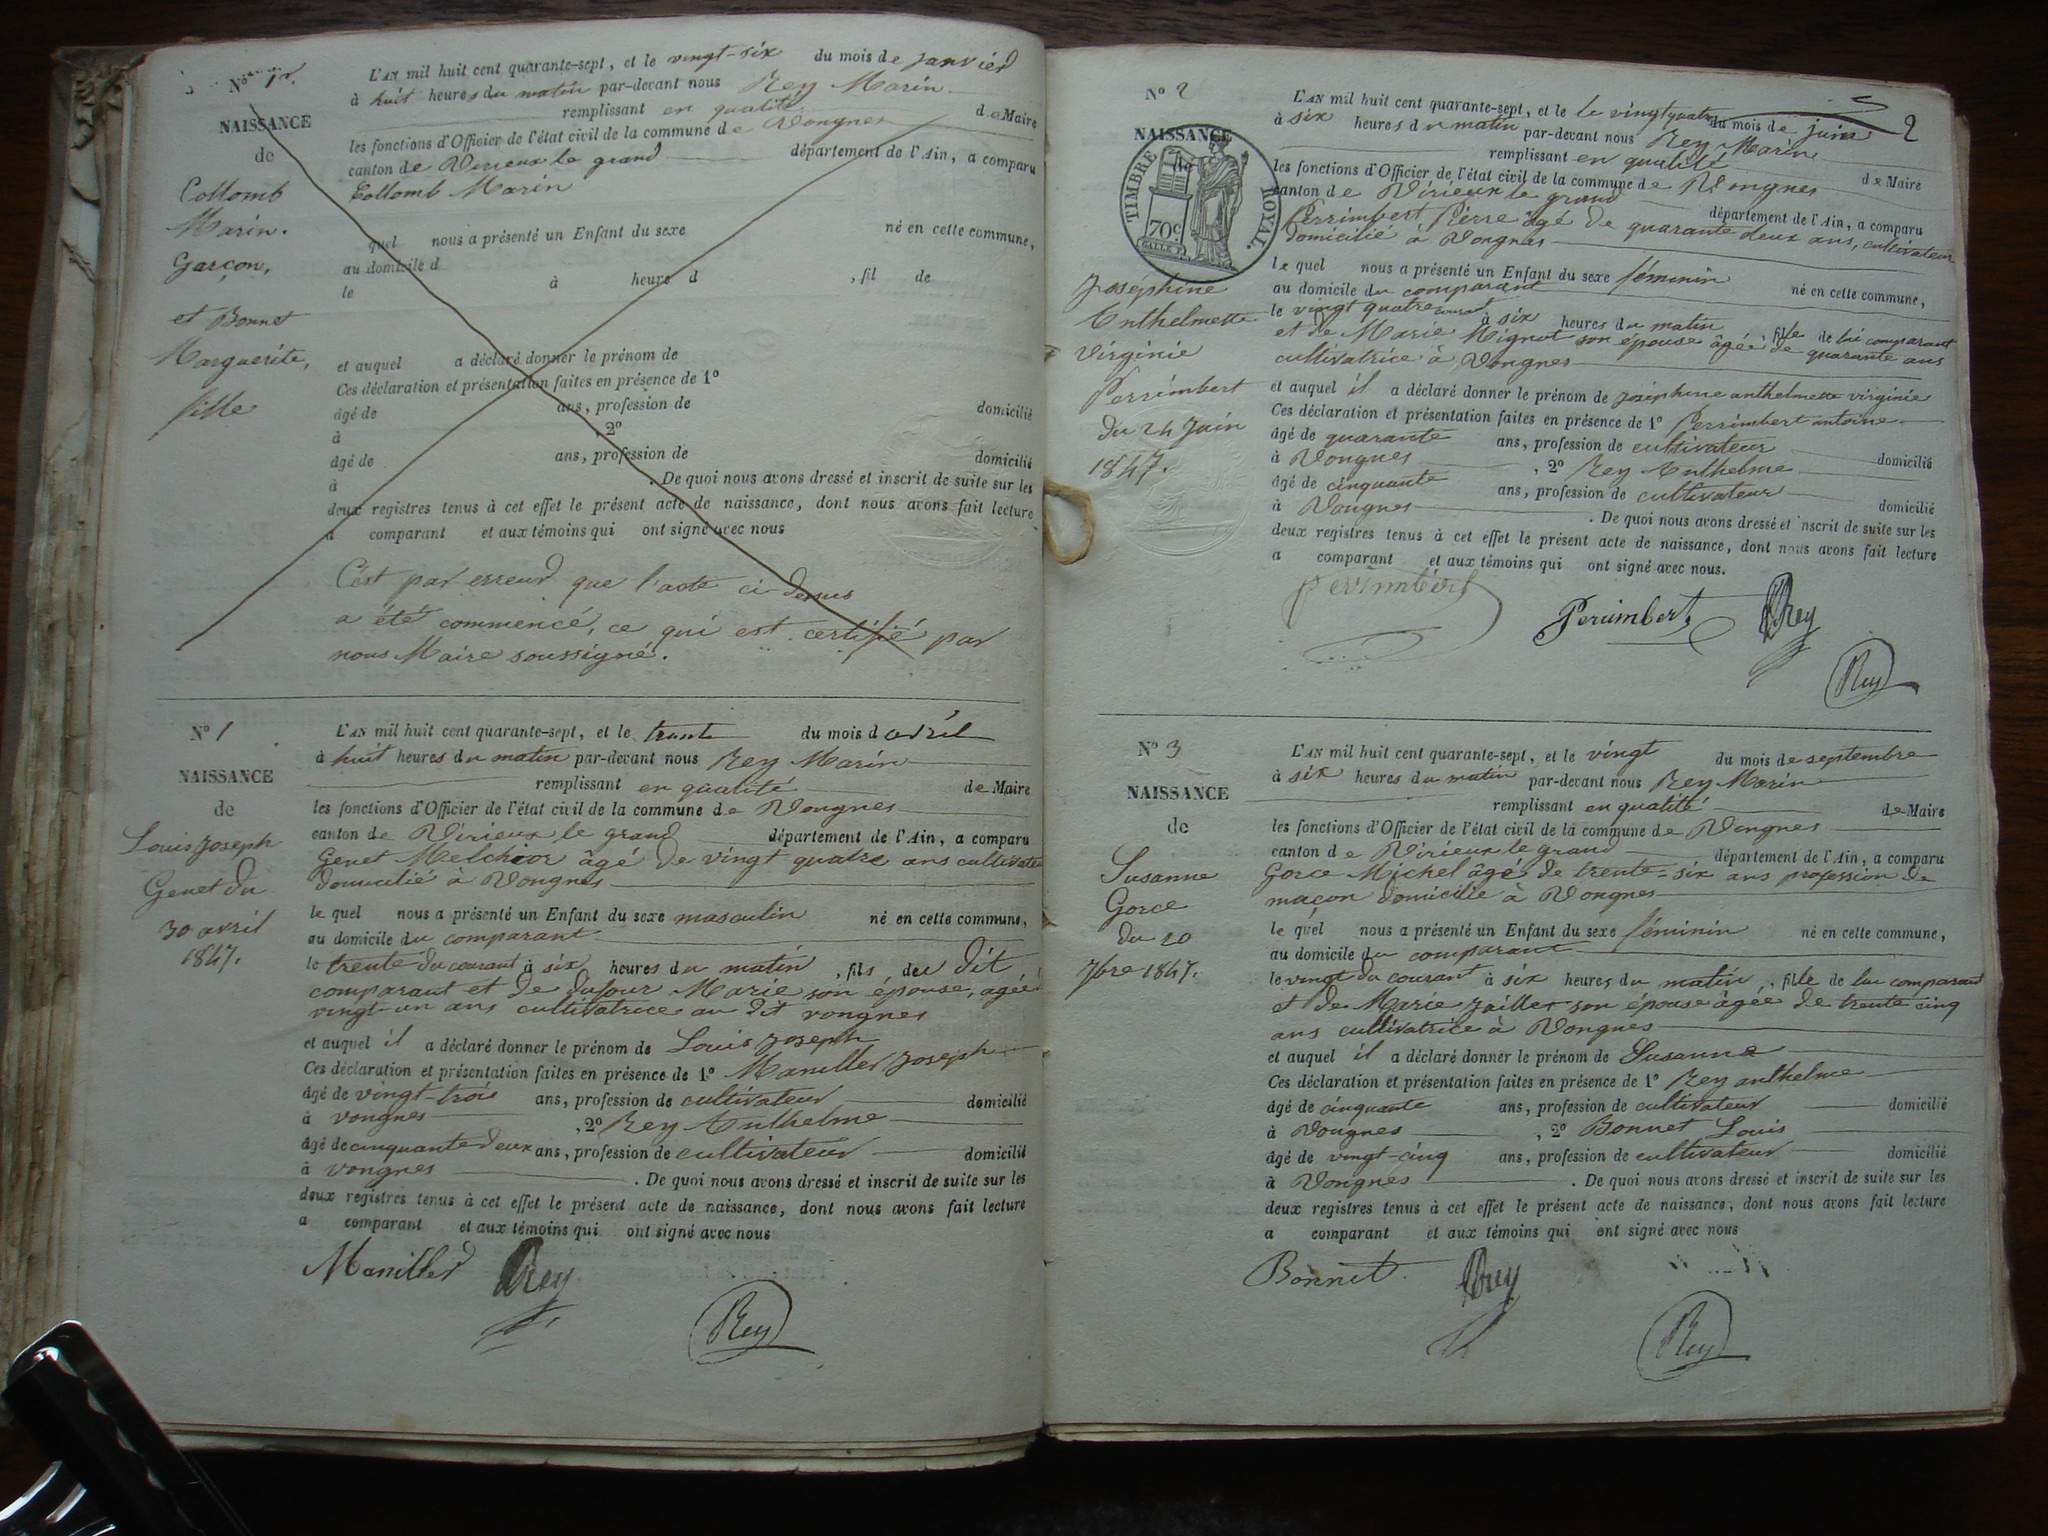 No 1er.
NAISSANCE
de
Collomb
Marin.
Garçon,
et Bonnet
Marguerite,
fille
L'AN mil huit cent quarante-sept, et le vingt-six du mois de janvier
à huit heures du matin par-devant nous Rey Marin
remplissant en qualité de Maire
les fonctions d'Officier de l'état civil de la commune de Vongnes
canton de Virieux le grand département de l'Ain, a comparu
Collomb Marin
quel nous a présenté un Enfant du sexe né en cette commune,
au domicile d
le à heure d , fil de
et auquel a déclaré donner le prénom de
Ces déclaration et présentation faites en présence de 1º
âgé de ans, profession de domicilié
à , 2º
âgé de ans, profession de domicilié
à . De quoi nous avons dressé et inscrit de suite sur les
deux registres tenus à cet effet le présent acte de naissance, dont nous avons fait lecture
a comparant et aux témoins qui ont signé avec nous
C'est par erreur que l'acte ci-dessus
a été commencé, ce qui est certifié par
nous Maire soussigné.
No 1
NAISSANCE
de
Louis joseph
Genet du
30 avril
1847.
L'AN mil huit cent quarante-sept, et le trente du mois d avril
à huit heures du matin par-devant nous Rey Marin
remplissant en qualité de Maire
les fonctions d'Officier de l'état civil de la commune de Vongnes
canton de Virieux le grand département de l'Ain, a comparu
Genet Melchior âgé de vingt quatre ans cultivateur
domicilié à Vongnes
le quel nous a présenté un Enfant du sexe masculin né en cette commune,
au domicile du comparant
le trente du courant à six heures du matin , fils du dit
comparant et de dufour Marie son épouse, agée
vingt-un ans cultivatrice au dit vongnes
et auquel il a déclaré donner le prénom de Louis joseph
Ces déclaration et présentation faites en présence de 1º Maniller joseph
âgé de vingt-trois ans, profession de cultivateur domicilié
à vongnes , 2º Rey Anthelme
âgé de cinquante deux ans, profession de cultivateur domicilié
à vongnes . De quoi nous avons dressé et inscrit de suite sur les
deux registres tenus à cet effet le présent acte de naissance, dont nous avons fait lecture
a comparant et aux témoins qui ont signé avec nous
Maniller Rey
Rey
2
No 2
NAISSANCE
de
TIMBRE ROYAL.
70c
Joséphine
Anthelmette
virginie
Perrimbert
du 24 juin
1847.
L'AN mil huit cent quarante-sept, et le le vingt quatre du mois de juin
à six heures du matin par-devant nous Rey Marin
remplissant en qualité de Maire
les fonctions d'Officier de l'état civil de la commune de Vongnes
canton de Virieux le grand département de l'Ain, a comparu
Perrimbert Pierre âgé de quarante deux ans, cultivateur
domicilié à Vongnes
le quel nous a présenté un Enfant du sexe féminin né en cette commune,
au domicile du comparant
le vingt quatre courant à six heures du matin , fille de lui comparant
et de Marie Mignot son épouse âgée de quarante ans
cultivatrice à Vongnes
et auquel il a déclaré donner le prénom de joséphine anthelmette virginie
Ces déclaration et présentation faites en présence de 1º Perrimbert antoine
âgé de quarante ans, profession de cultivateur domicilié
à Vongnes , 2º Rey Anthelme
âgé de cinquante ans, profession de cultivateur domicilié
à Vongnes . De quoi nous avons dressé et inscrit de suite sur les
deux registres tenus à cet effet le présent acte de naissance, dont nous avons fait lecture
a comparant et aux témoins qui ont signé avec nous.
Perimbert Rey
Rey
No 3
NAISSANCE
de
Susanne
Gorce
du 20
7bre 1847.
L'AN mil huit cent quarante-sept, et le vingt du mois de septembre
à six heures du matin par-devant nous Rey Marin
remplissant en qualité de Maire
les fonctions d'Officier de l'état civil de la commune de Vongnes
canton de Virieux le grand département de l'Ain, a comparu
Gorce Michel âgé de trente-six ans profession de
maçon domicilié à Vongnes
le quel nous a présenté un Enfant du sexe féminin né en cette commune,
au domicile du comparant
le vingt du courant à six heures du matin , fille de lui comparant
et de Marie jaillet son épouse âgée de trente cinq
ans cultivatrice à Vongnes
et auquel il a déclaré donner le prénom de Susanne
Ces déclaration et présentation faites en présence de 1º Rey anthelme
âgé de cinquante ans, profession de cultivateur domicilié
à Vongnes , 2º Bonnet Louis
âgé de vingt-cinq ans, profession de cultivateur domicilié
à Vongnes . De quoi nous avons dressé et inscrit de suite sur les
deux registres tenus à cet effet le présent acte de naissance, dont nous avons fait lecture
a comparant et aux témoins qui ont signé avec nous
Bonnet Rey
Rey